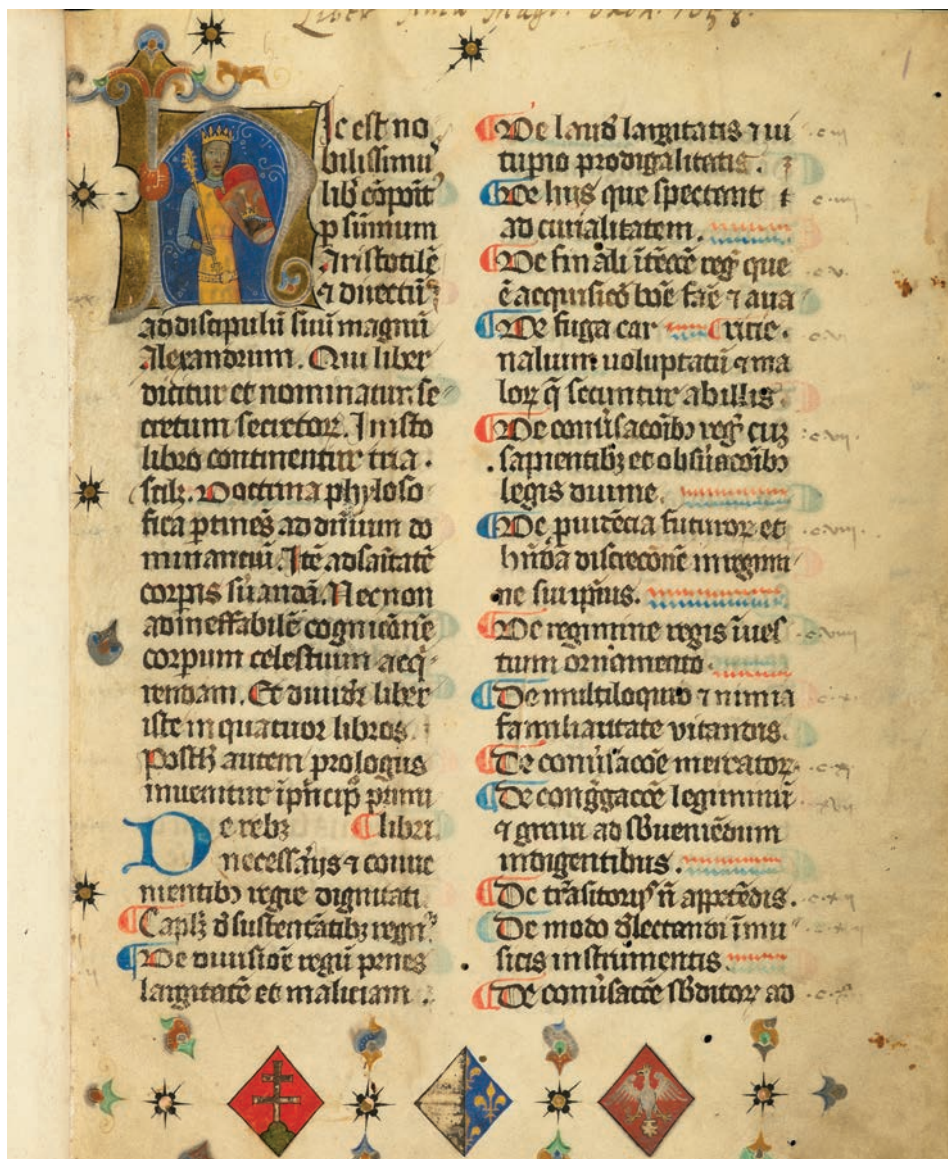 Liber Aulæ Magd. Oxon. 1658.
Hic est no
bilissimꝰ
lib̄ cōpoīt
p sūmum
Aristotilē
⁊ directꝰ
ad discipulū suū magnū
Alexandrum. Qui liber
dicitur et nominatur se
cretum secretoꝝ. In isto
libro continentur tria.
scilꝫ. Doctrina phyloso
fica ptinēs ad oīnium do
minantiū. Itē ad saītatē
corpis suandā. Necnon
ad ineffabilē cognicōnē
corpum celestium acq̄
rendam. Et diuidr liber
iste in quatuor libros.
Postꝫ autem prologus
inuenitur ī pncipꝰ primi
De rebꝫ libri.
necessarijs ⁊ conue
nientibꝫ regie dignitati
Caplꝫ d sustentātibꝫ regnꝰ
De diuisiōe regū penes
largitatē et maliciam.
De laudꝰ largitatis ⁊ ui c. iij
tupio prodigalitatis.
De hijs que spectant c. iiij
ad curialitatem.
De finali ītēcōe regꝰ que c. v.
ē acquisicō boē fāe ⁊ aua
De fuga car ricie. c. vi
nalium uoluptatū ⁊ ma
loꝝ q̄ secuntur ab illis.
De conūsacoībꝫ regꝰ cuꝫ c. vij
sapientibꝫ et obsūacoībꝫ
legis diuine.
De prudēcia futuroꝝ et c. viij.
hn̄da discrecōnē in regimi
ne sui ipius.
De regimine regis ī ues c. viiij
tium ornamento.
De multiloquio ⁊ nimia c. x
familiaritate vitandis.
De conūsacōe mercatoꝝ c. xj
De cong̃gacōe leguminū xij
⁊ granꝰ ad sb̄ueniēdum
indigentibus.
De trāsitorijs n̄ appetēdis.
De modo dlectandi ī mu
sicis instrumentis.
De conūsacōe sb̄ditoꝝ ad